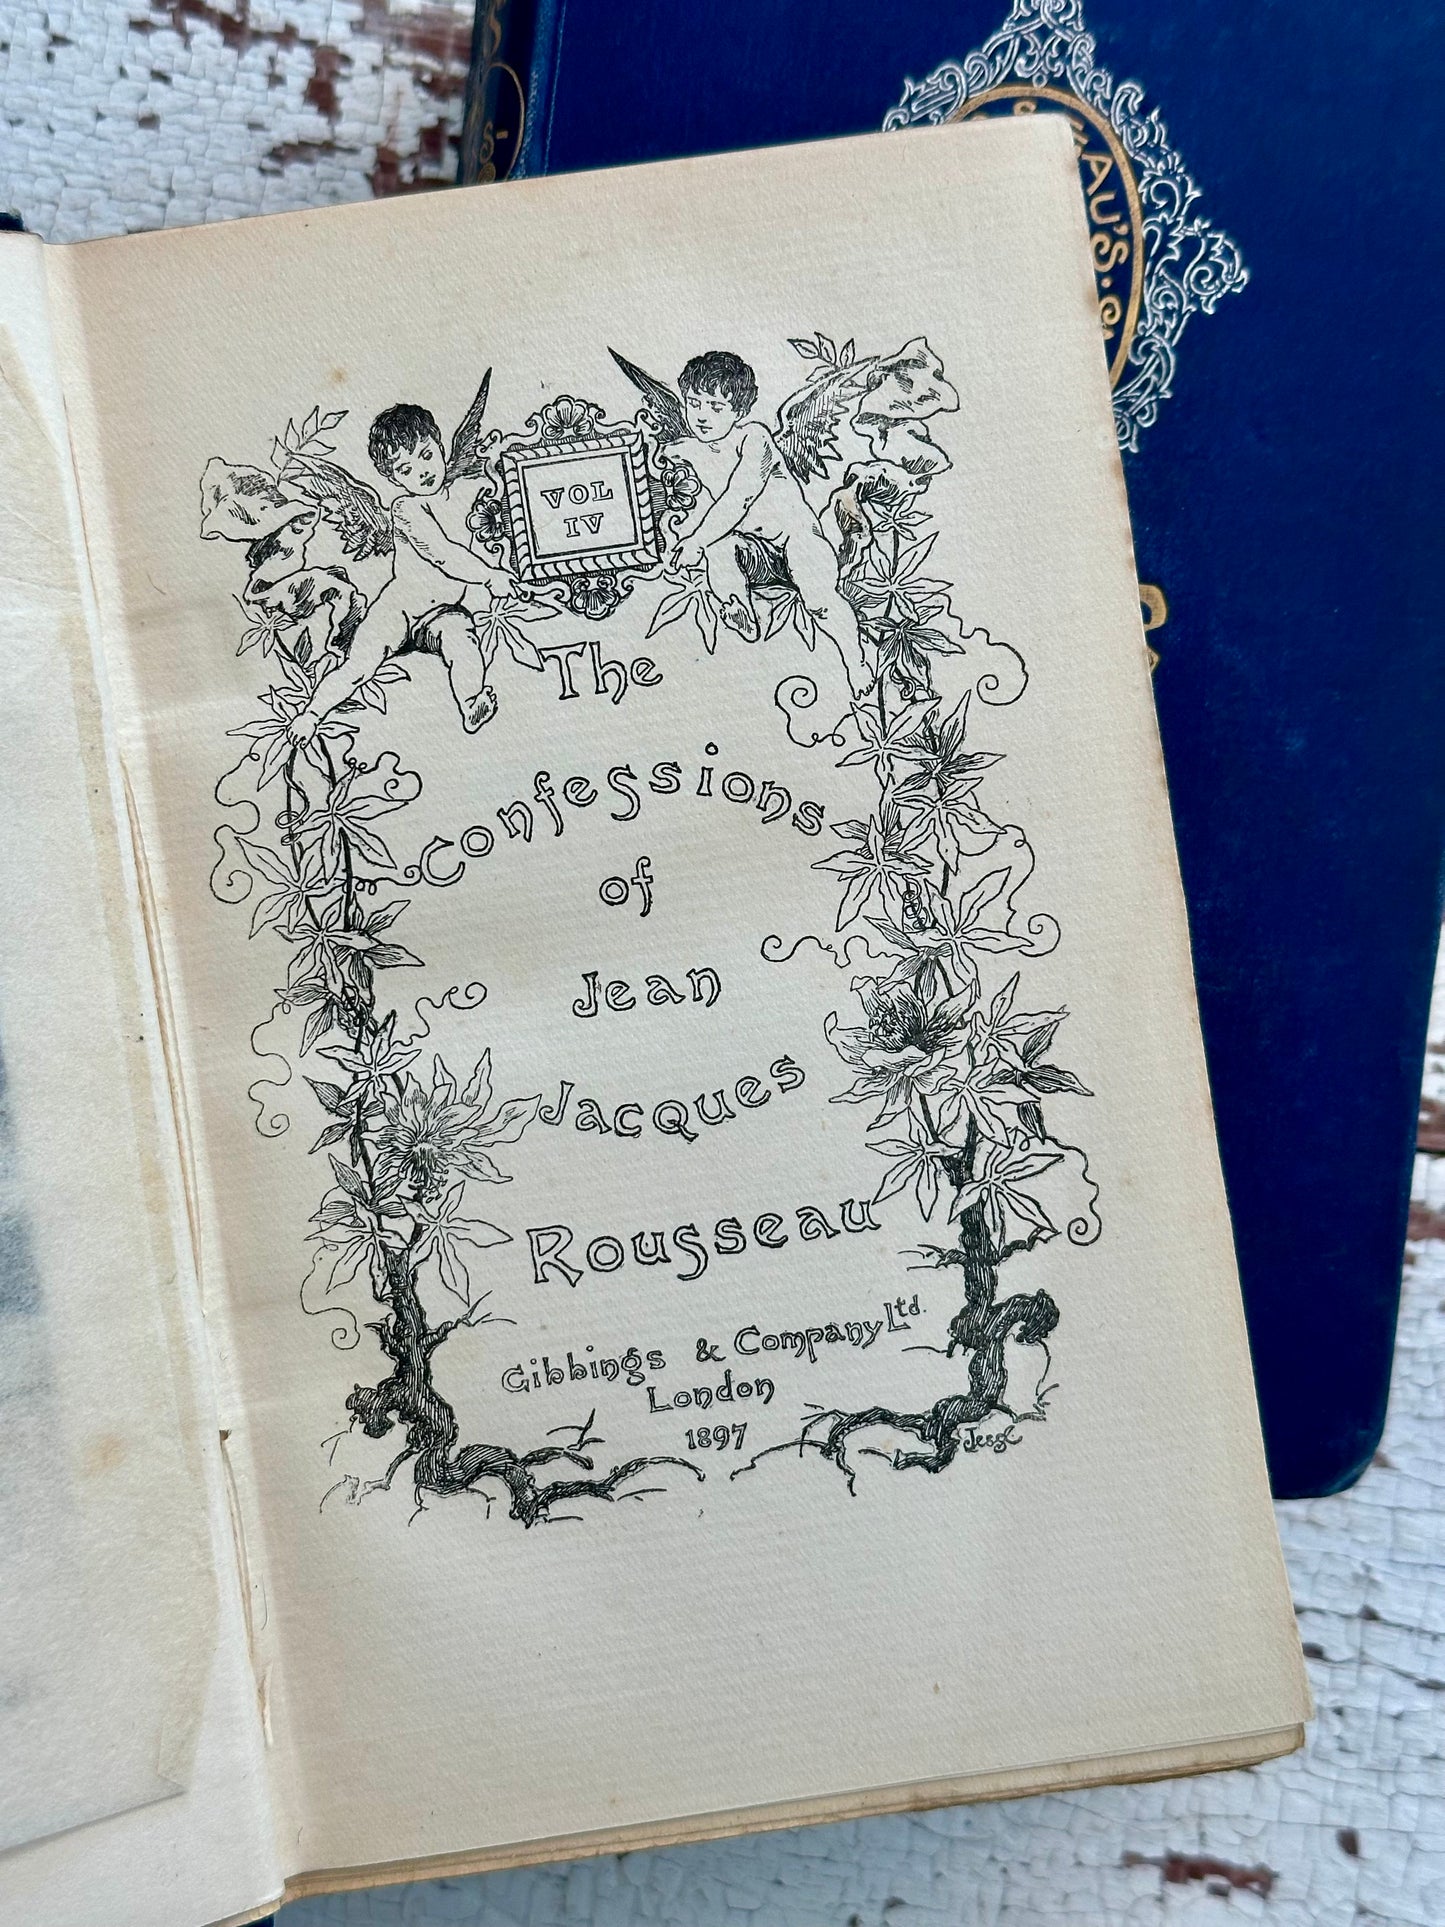 VOL
IV
The
Confessions
of
Jean
Jacques
Rousseau
Gibbings & Company Ltd.
London
1897